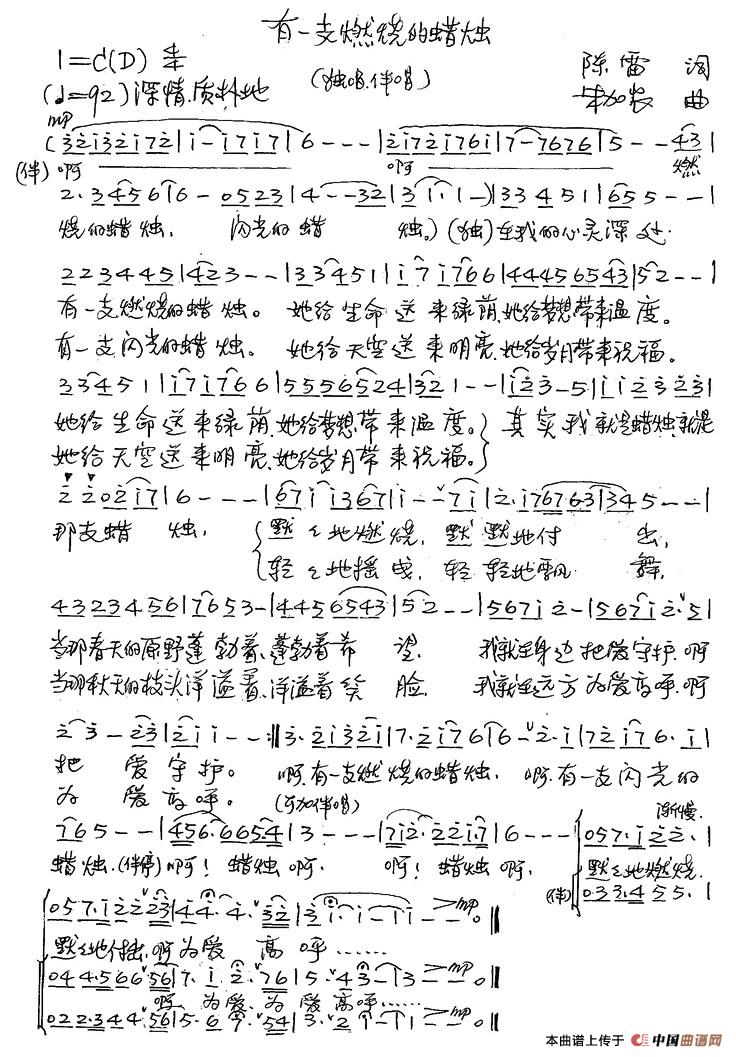 有一支燃烧的蜡烛
1=C(D)
(独唱.伴唱)
陈雷 词
曲
(♩=92)深情.质朴地
mp
(3 2 i 3 2 i 7 2 | i - i 7 i 7 | 6 - - - | 2 i 7 2 i 7 6 i | 7 - 7 6 7 6 | 5 - - 4 3 |
(伴) 啊 啊 燃
2. 3 4 5 6 | 6 - 0 5 2 3 | 4 - - 3 2 | 3 1. 1. 1 -) | 3 3 4 5 1 | 6 5 5 - - |
烧的蜡烛, 闪光的蜡 烛。)(独)在我的心灵深处
2 2 3 4 4 5 | 4 2 3 - - | 3 3 4 5 1 | i 7 i 7 6 6 | 4 4 4 5 6 5 4 3 | 5 2 - - |
有一支燃烧的蜡烛。 她给生命送来绿荫,她给梦想带来温度。
有一支闪光的蜡烛。 她给天空送来明亮,她给岁月带来祝福。
2 3 4 5 1 | i 7 i 7 6 6 | 5 5 5 5 6 5 2 4 | 3 2 1 - - | i 2 3 - 5 | i i 2 3 2 3 |
她给生命送来绿荫,她给梦想带来温度。} 其实我就是蜡烛,就是
她给天空送来明亮,她给岁月带来祝福。
2 2 0 2 i 7 | 6 - - - | 6 7 i i 3 6 7 | i - - 7 i | 2. i 7 6 7 6 3 | 3 4 5 - - |
那支蜡 烛, 默々地燃烧, 默默地付 出,
轻々地摇曳, 轻轻地飘 舞,
4 3 2 3 4 5 6 | 7 6 5 3 - | 4 4 5 6 5 4 3 | 5 2 - - | 5 6 7 i 2 - | 5 6 7 i 2. 5 |
当那春天的原野蓬勃着、蓬勃着希 望, 我就在身边把爱守护.啊
当那秋天的枝头洋溢着、洋溢着笑 脸, 我就在远方为爱高呼.啊
2 3 - 2 3 | 2 i i - - :‖ 3. 2 i 3 2 i | 7. 2 i 7 6 | 6 - 2. i | 7 2 i 7 6. i |
把 爱 守 护。 啊,有一支燃烧的蜡烛, 啊,有一支闪光的
为 爱 高 呼。 (可加伴唱)
渐慢
7 6 5 - - | 4 5 6. 6 6 5. 4 | 3 - - - | 7 i 2. 2 2 i. 7 | 6 - - - | 0 5 7. i 2 2. |
蜡烛.(伴停)啊! 蜡烛啊. 啊! 蜡烛啊, 默々地燃烧.
(伴) 0 3 3. 4 5 5. |
0 5 7. i 2 2 2 3 | 4 4. 4. 3 2 | 3 i. i - | i i - > mp 0 ‖
默々地付出,啊为爱 高 呼……
0 4 4. 5 6 6 5 6 | 7. i 2. 7 6 | 5. 4 3 - | 3 - > mp 0 ‖
啊, 为爱, 为爱高呼……
0 2 2. 3 4 4. 5 6 | 5. 6 7. 5 4 | 3. 2 1 - | 1 - > mp 0 ‖
本曲谱上传于 中国曲谱网